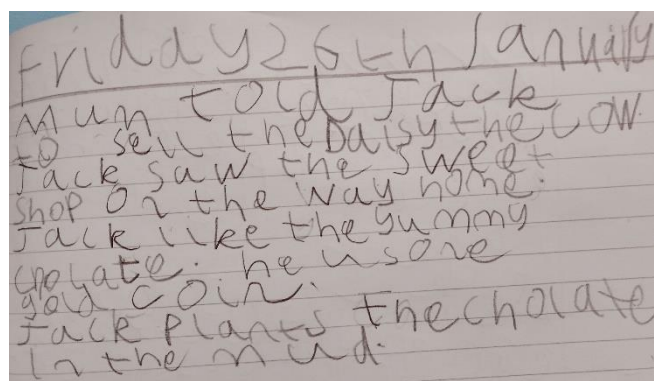 Friday 26th January
Mum told Jack
to sell the Daisy the cow.
Jack saw the sweet
shop on the way home.
Jack like the yummy
cholate. he us one
gold coin.
Jack plants the cholate
in the mud.